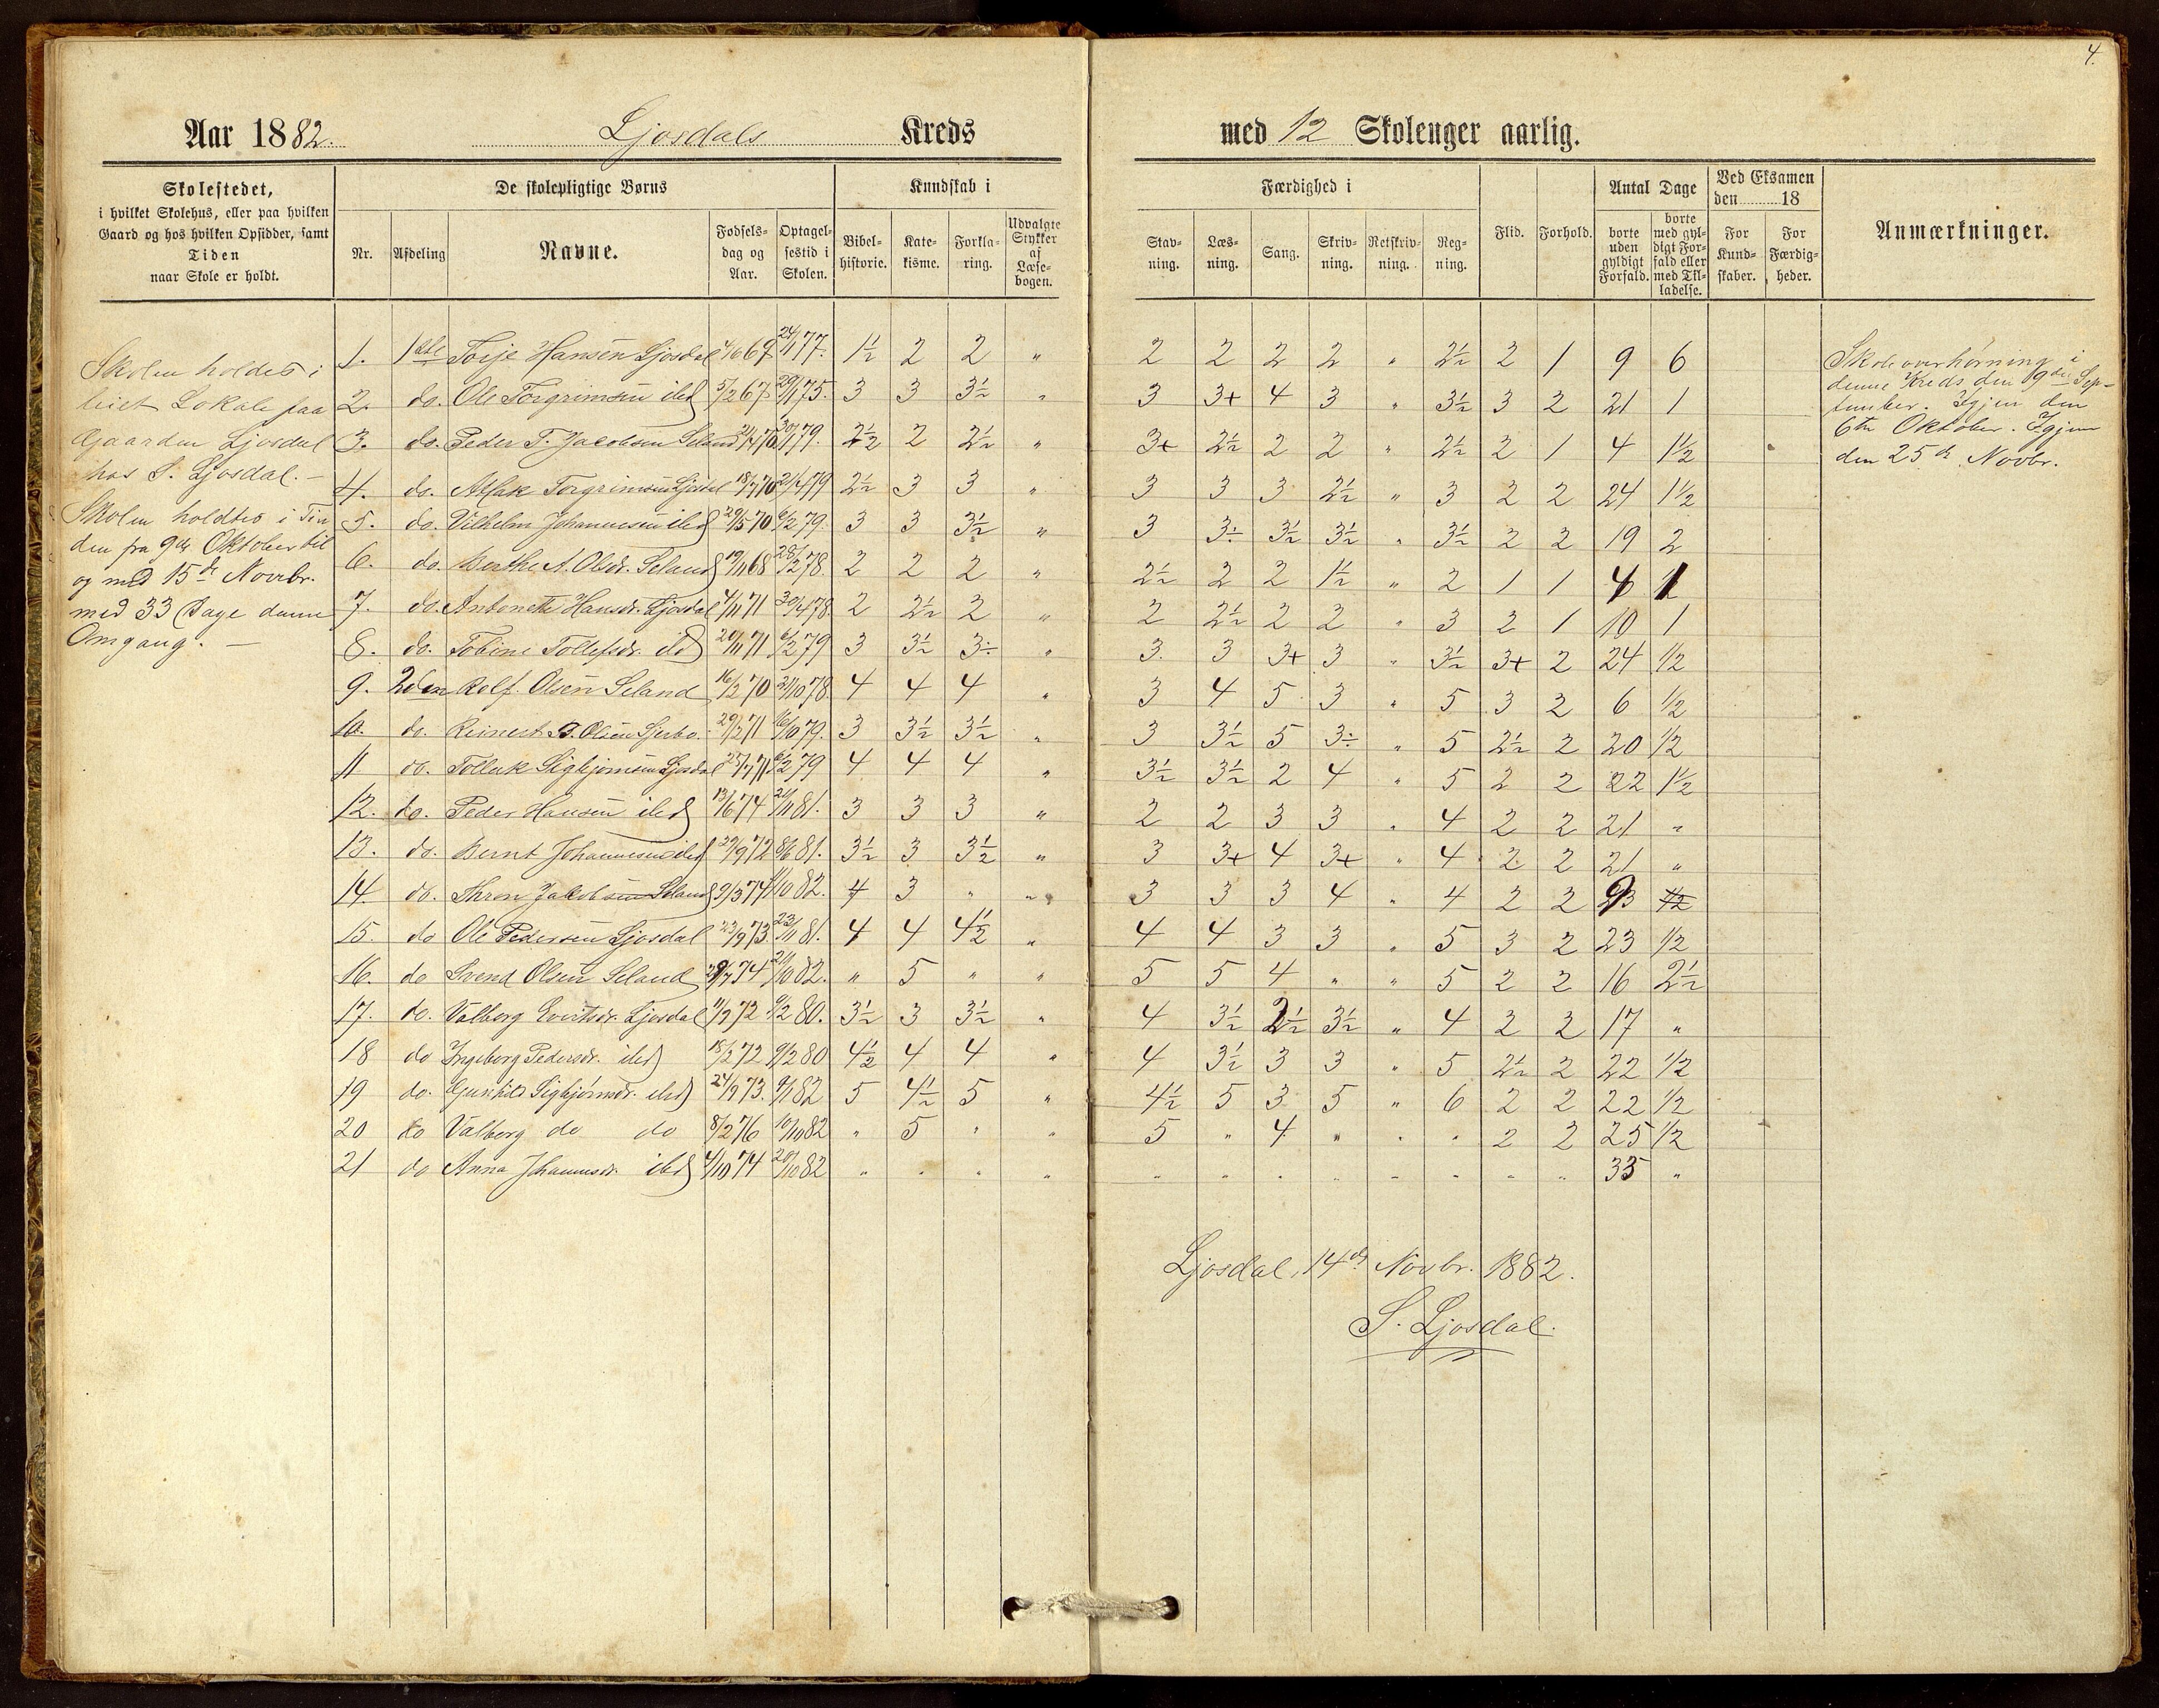 4.
Aar 1882. Ljosdals Kreds
med 12 Skolenger aarlig.
Skolestedet,
i hvilket Skolehus, eller paa hvilken
Gaard og hos hvilken Opsidder, samt
Tiden
naar Skole er holdt.
De skolepligtige Børns
Nr. Afdeling Navne. Fødselsdag og Aar. Optagelsestid i Skolen.
Kundskab i
Bibelhistorie. Katekisme. Forklaring. Udvalgte Stykker af Læsebogen.
Færdighed i
Stavning. Læsning. Sang. Skrivning. Retskrivning. Regning.
Flid. Forhold.
Antal Dage
borte uden gyldigt Forfald. borte med gyldigt Forfald eller med Tilladelse.
Ved Eksamen
den 18
For Kundskaber. For Færdigheder.
Anmærkninger.
Skolen holdes i
leiet Lokale paa
Gaarden Ljosdal
hos S. Ljosdal. —
Skolen holdtes i Tiden
fra 9de Oktober til
og med 15de Novbr.
med 33 Dage denne
Omgang. —
1. 1ste Torje Hansen Ljosdal 4/6 69 24/1 77. 1½ 2 2 " 2 2 2 2 " 2½ 2 1 9 6
2. do. Ole Torgrimsen ibid 5/2 67 29/1 75. 3 3 3½ " 3 3+ 4 3 " 3½ 3 2 21 1
3. do. Peder T. Jacobsen Seland 70 79. 2½ 2 2½ " 3+ 2½ 2 2 " 2½ 2 1 4 1½
4. do. Torgrimsen Ljosdal 18/7 70 21/4 79 2½ 3 3 " 3 3 3 2½ " 3 2 2 24 1½
5. do. Vilhelm Johannesen ibid 29/5 70 6/2 79. 3 3 3½ " 3 3÷ 3½ 3½ " 3½ 2 2 19 2
6. do. Berthe A. Olsdr. Seland 19/11 68 28/2 78. 2 2 2 " 2½ 2 2 1½ " 2 1 1 4 1
7. do. Antonette Hansdr. Ljosdal 4/11 71 30/4 78. 2 2½ 2 " 2 2½ 2 2 " 3 2 1 10 1
8. do. Tobine Tollefsdr. ibid 20/11 71 6/2 79 3 3½ 3÷ " 3. 3 3+ 3 " 3½ 3+ 2 24 ½
9. 2den Rolf Olsen Seland 16/2 70 21/10 78. 4 4 4 " 3 4 5 3 " 5 3 2 6 ½
10. do. Reinert B. Olsen 20/2 71 16/10 79. 3 3½ 3½ " 3 3½ 5 3÷ " 5 2½ 2 20 ½
11 do. Tollak Sigbjørnsen Ljosdal 25/7 71 6/2 79 4 4 4 " 3½ 3½ 2 4 " 5 2 2 22 1½
12. do. Peder Hansen ibid 13/6 74 21/11 81. 3 3 3 " 2 2 3 3 " 4 2 2 21 "
13. do. Bernt Johannesen ibid 29/9 72 8/6 81. 3½ 3 3½ " 3 3+ 4 3+ " 4 2 2 21 "
14. do. Thron Jakobsen Seland 2/3 74 11/10 82. 4 3 " " 3 3 3 4 " 4 2 2
15. do Ole Pedersen Ljosdal 23/9 73. 23/11 81. 4 4 4½ " 4 4 3 3 " 5 3 2 23 ½
16. do Svend Olsen Seland 74 21/10 82. " 5 " " 5 5 4 " " 5 2 2 16 2½
17. do. Valborg Evertsdr. Ljosdal 72 9/2 80. 3½ 3 3½ " 4 3½ 2½ 3½ " 4 2 2 17 "
18 do Ingeborg Pedersdr. ibid 18/2 72 9/2 80 4½ 4 4 " 4 3½ 3 3 " 5 2½ 2 22 ½
19 do. Gunhild Sigbjørnsdr. ibid 24/9 73. 9/1 82 5 4½ 5 " 4½ 5 3 5 " 6 2 2 22 ½
20 do Valborg do do 8/2 76 10/10 82 " 5 " " 5 " 4 " " " 2 2 25 ½
21 do Anna Johannesdr. ibid 4/10 74 20/10 82 " " " " " " " " " " " " 33 "
Skoleoverhørning i
denne Kreds den 19de September.
Igjen den
6te Oktober. Igjen
den 25de Novbr.
Ljosdal, 14de Novbr. 1882.
S. Ljosdal.